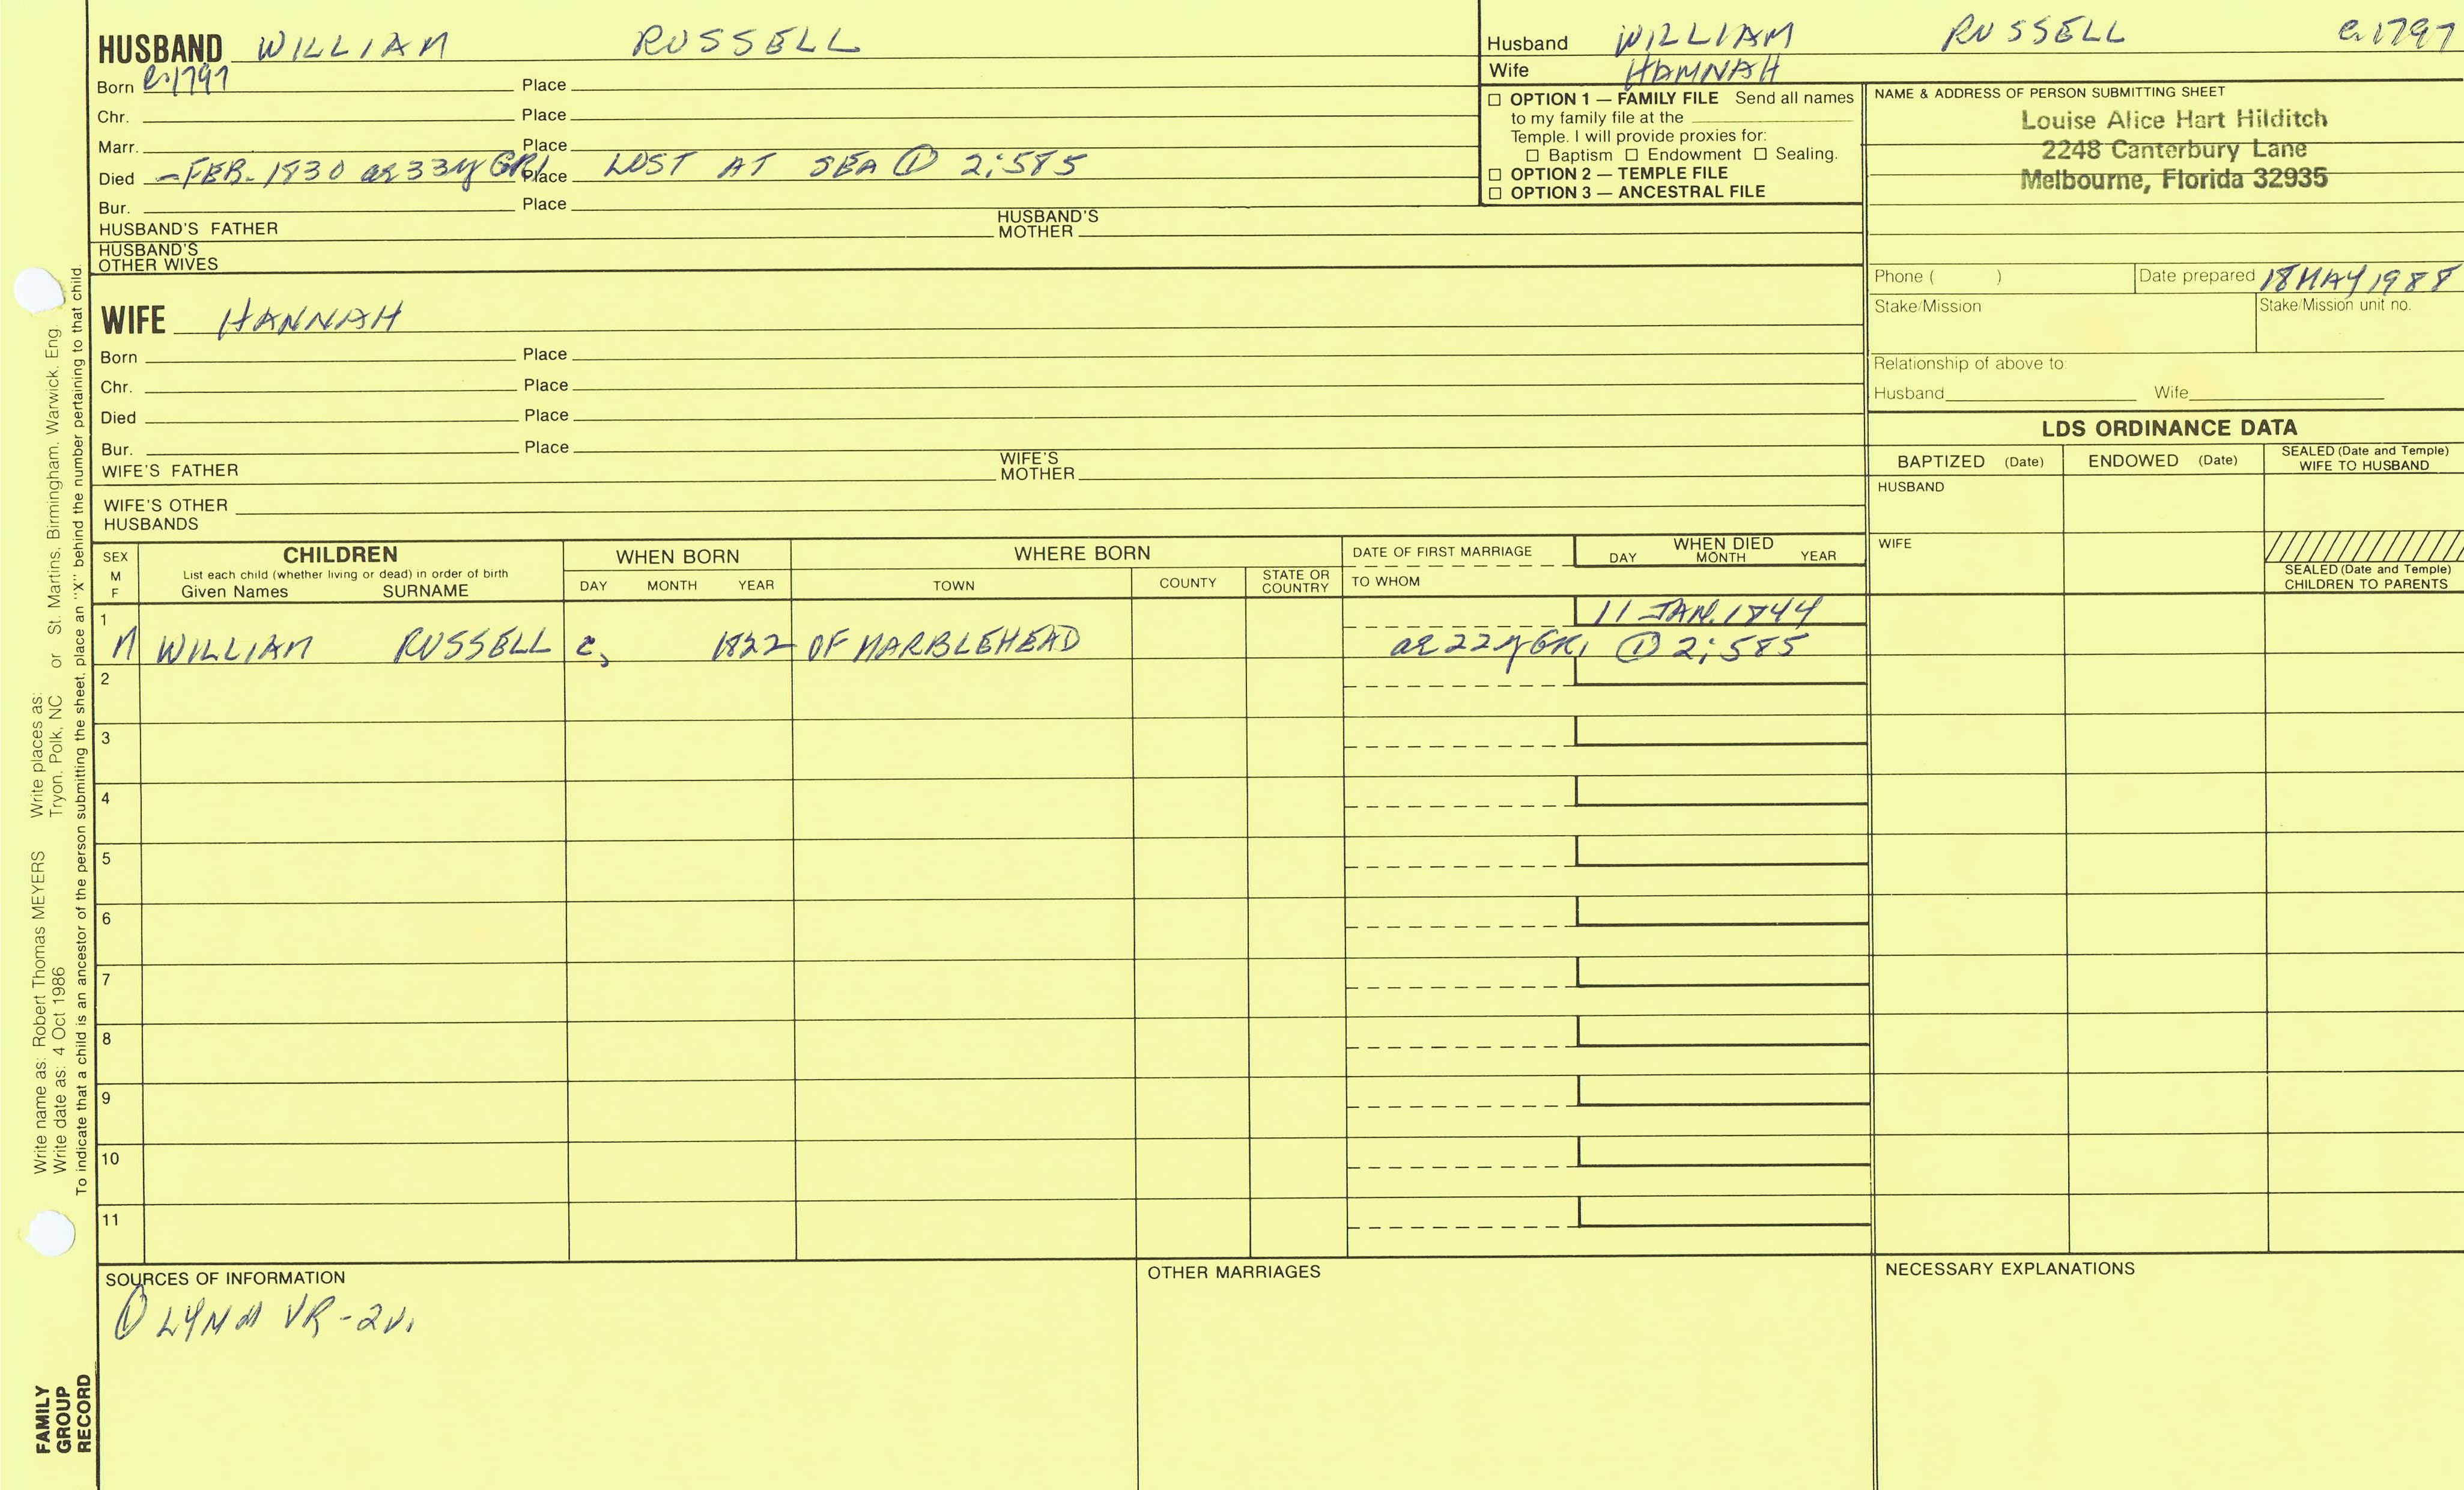 HUSBAND WILLIAM RUSSELL
Born c.1797 Place
Chr. Place
Marr. Place
Died -FEB. 1830 ae 33y GR1 Place LOST AT SEA ① 2:585
Bur. Place
HUSBAND'S FATHER HUSBAND'S MOTHER
HUSBAND'S
OTHER WIVES
Husband WILLIAM RUSSELL c.1797
Wife HANNAH
☐ OPTION 1 — FAMILY FILE Send all names
to my family file at the
Temple. I will provide proxies for:
☐ Baptism ☐ Endowment ☐ Sealing.
☐ OPTION 2 — TEMPLE FILE
☐ OPTION 3 — ANCESTRAL FILE
NAME & ADDRESS OF PERSON SUBMITTING SHEET
Louise Alice Hart Hilditch
2248 Canterbury Lane
Melbourne, Florida 32935
Phone ( ) Date prepared 18 MAY 1988
Stake/Mission Stake/Mission unit no.
Relationship of above to:
Husband Wife
WIFE HANNAH
Born Place
Chr. Place
Died Place
Bur. Place
WIFE'S FATHER WIFE'S MOTHER
WIFE'S OTHER
HUSBANDS
LDS ORDINANCE DATA
BAPTIZED (Date) ENDOWED (Date) SEALED (Date and Temple) WIFE TO HUSBAND
HUSBAND
WIFE
SEALED (Date and Temple)
CHILDREN TO PARENTS
SEX M F CHILDREN WHEN BORN WHERE BORN DATE OF FIRST MARRIAGE WHEN DIED
List each child (whether living or dead) in order of birth
Given Names SURNAME DAY MONTH YEAR TOWN COUNTY STATE OR COUNTRY TO WHOM DAY MONTH YEAR
1 11 JAN. 1844
M WILLIAM RUSSELL c, 1822 OF MARBLEHEAD ae 22y GR1 ① 2:585
2
3
4
5
6
7
8
9
10
11
SOURCES OF INFORMATION OTHER MARRIAGES NECESSARY EXPLANATIONS
① LYNN VR-2V.
Write name as: Robert Thomas MEYERS Write places as:
Write date as: 4 Oct 1986 Tryon, Polk, NC or St. Martins, Birmingham, Warwick, Eng
To indicate that a child is an ancestor of the person submitting the sheet, place an "X" behind the number pertaining to that child.
FAMILY
GROUP
RECORD